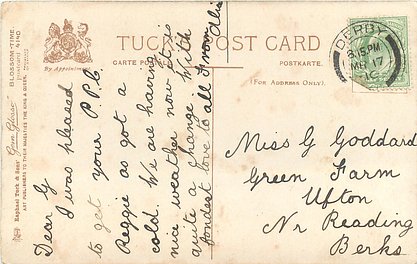 TUCK'S POST CARD
CARTE POSTALE
POSTKARTE.
(FOR ADDRESS ONLY)
By Appointment
Raphael Tuck & Sons'
"BLOSSOM-TIME."
POSTCARD 4190
ART PUBLISHERS TO THEIR MAJESTIES THE KING & QUEEN.
DERBY
8.15 PM
MR 17
10
Dear G
I was pleased
to get your P.P.C.
Reggie as got a
cold. We are having
nice weather now it is
quite a change. With
fondest love to all from
Miss G Goddard
Green Farm
Ufton
Nr Reading
Berks